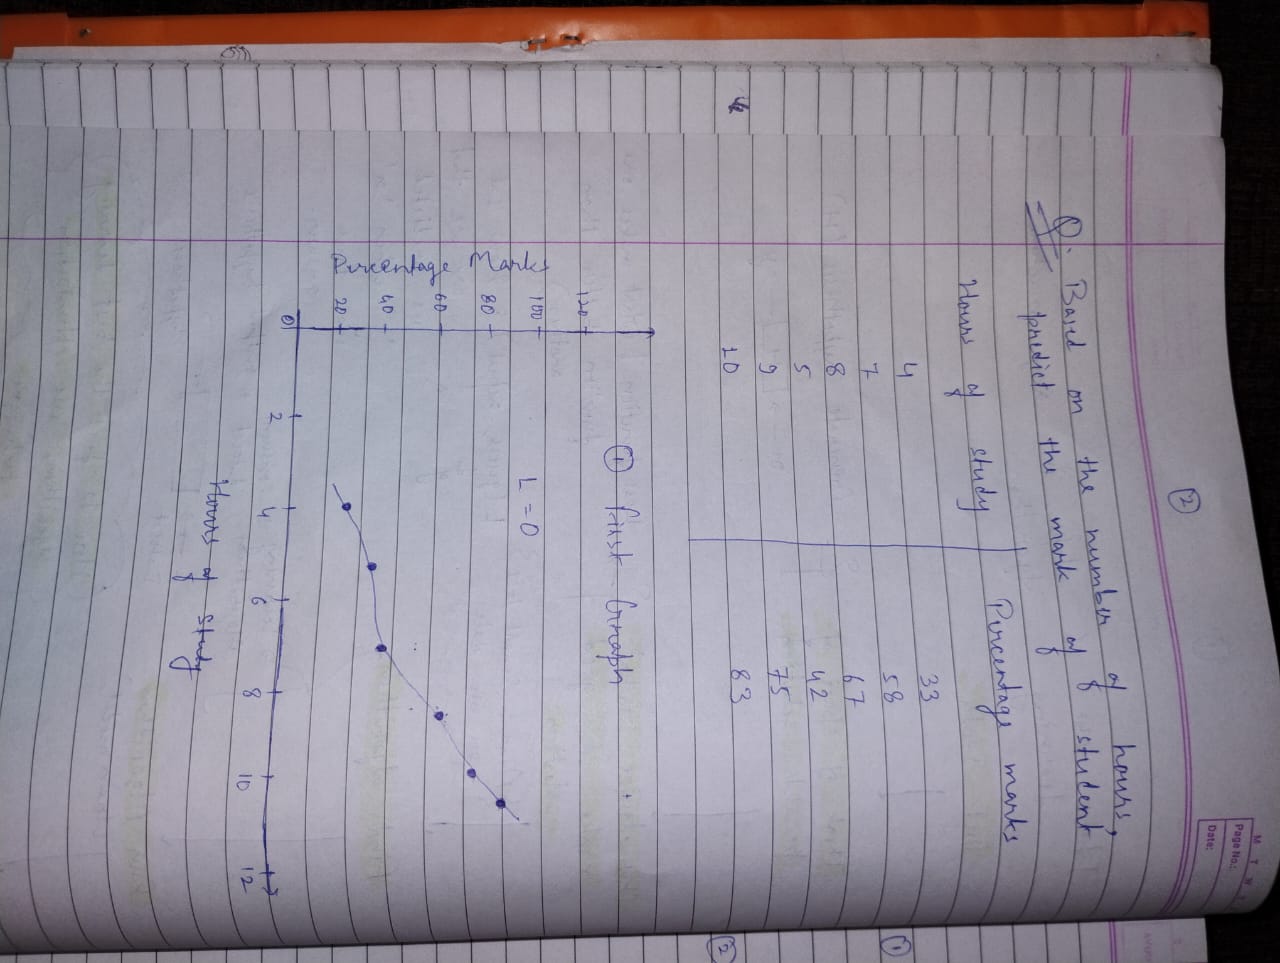 M T W
Page No.:
Date:
2
Q. Based on the number of hours,
predict the mark of student
Hours of study Percentage marks
4 33
7 58
8 67
5 42
9 75
10 83
① First Graph
L = 0
Percentage Marks
120
100
80
60
40
20
0 2 4 6 8 10 12
Hours of study
①
②